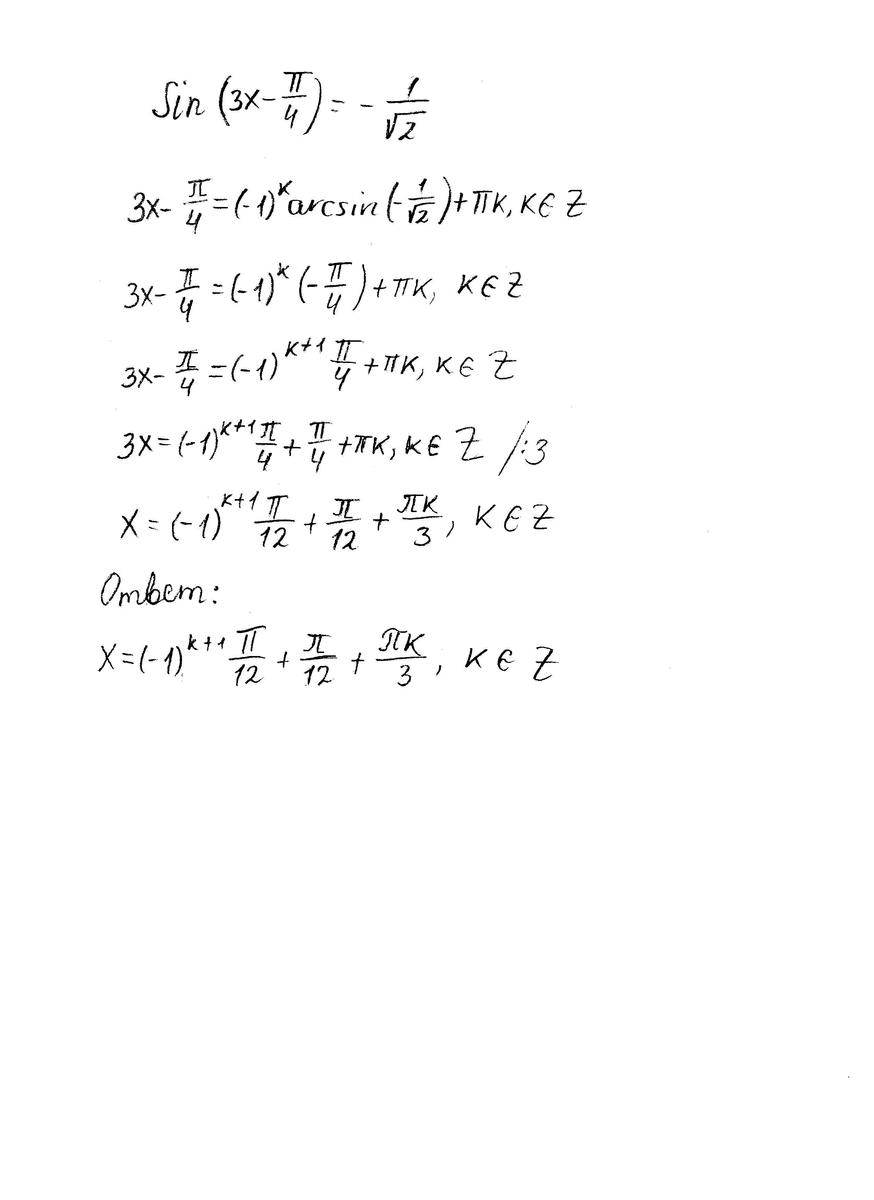 Sin (3x - π/4) = - 1/√2
3x - π/4 = (-1)^k arcsin (- 1/√2) + πk, k ∈ Z
3x - π/4 = (-1)^k (- π/4) + πk, k ∈ Z
3x - π/4 = (-1)^(k+1) π/4 + πk, k ∈ Z
3x = (-1)^(k+1) π/4 + π/4 + πk, k ∈ Z /:3
x = (-1)^(k+1) π/12 + π/12 + πk/3, k ∈ Z
Ответ:
x = (-1)^(k+1) π/12 + π/12 + πk/3, k ∈ Z